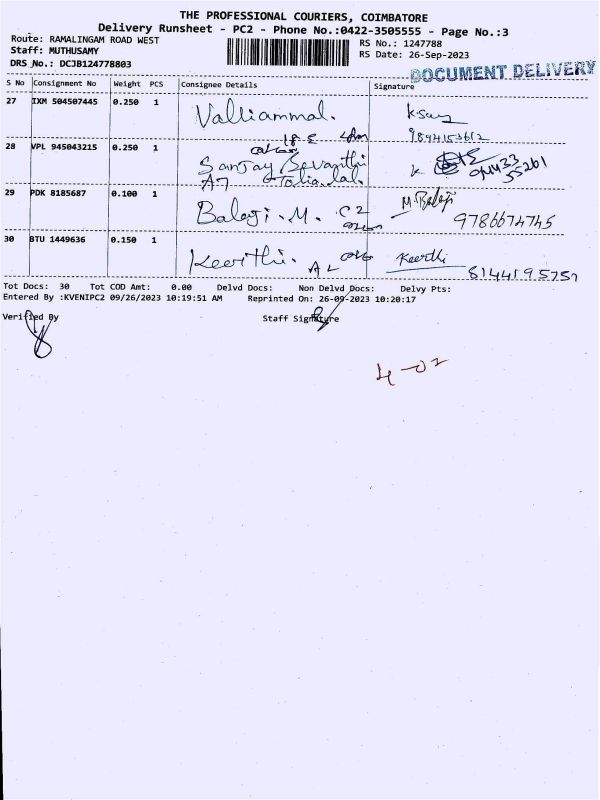 THE PROFESSIONAL COURIERS, COIMBATORE
Delivery Runsheet - PC2 - Phone No.:0422-3505555 - Page No.:3
Route: RAMALINGAM ROAD WEST
RS No.: 1247788
Staff: MUTHUSAMY
RS Date: 26-Sep-2023
DRS No.: DCJB124778803
DOCUMENT DELIVERY
S No Consignment No Weight PCS Consignee Details Signature
27 IXM 504507445 0.250 1 Valliammal.
28 VPL 945043215 0.250 1 Sanjay
A7
29 PDK 8185687 0.100 1 Balaji. M. C2 M. Balaji
9786674745
30 BTU 1449636 0.150 1 Keerthi. Keerthi
8144195757
Tot Docs: 30 Tot COD Amt: 0.00 Delvd Docs: Non Delvd Docs: Delvy Pts:
Entered By :KVENIPC2 09/26/2023 10:19:51 AM Reprinted On: 26-09-2023 10:20:17
Verified By Staff Signature
4-02